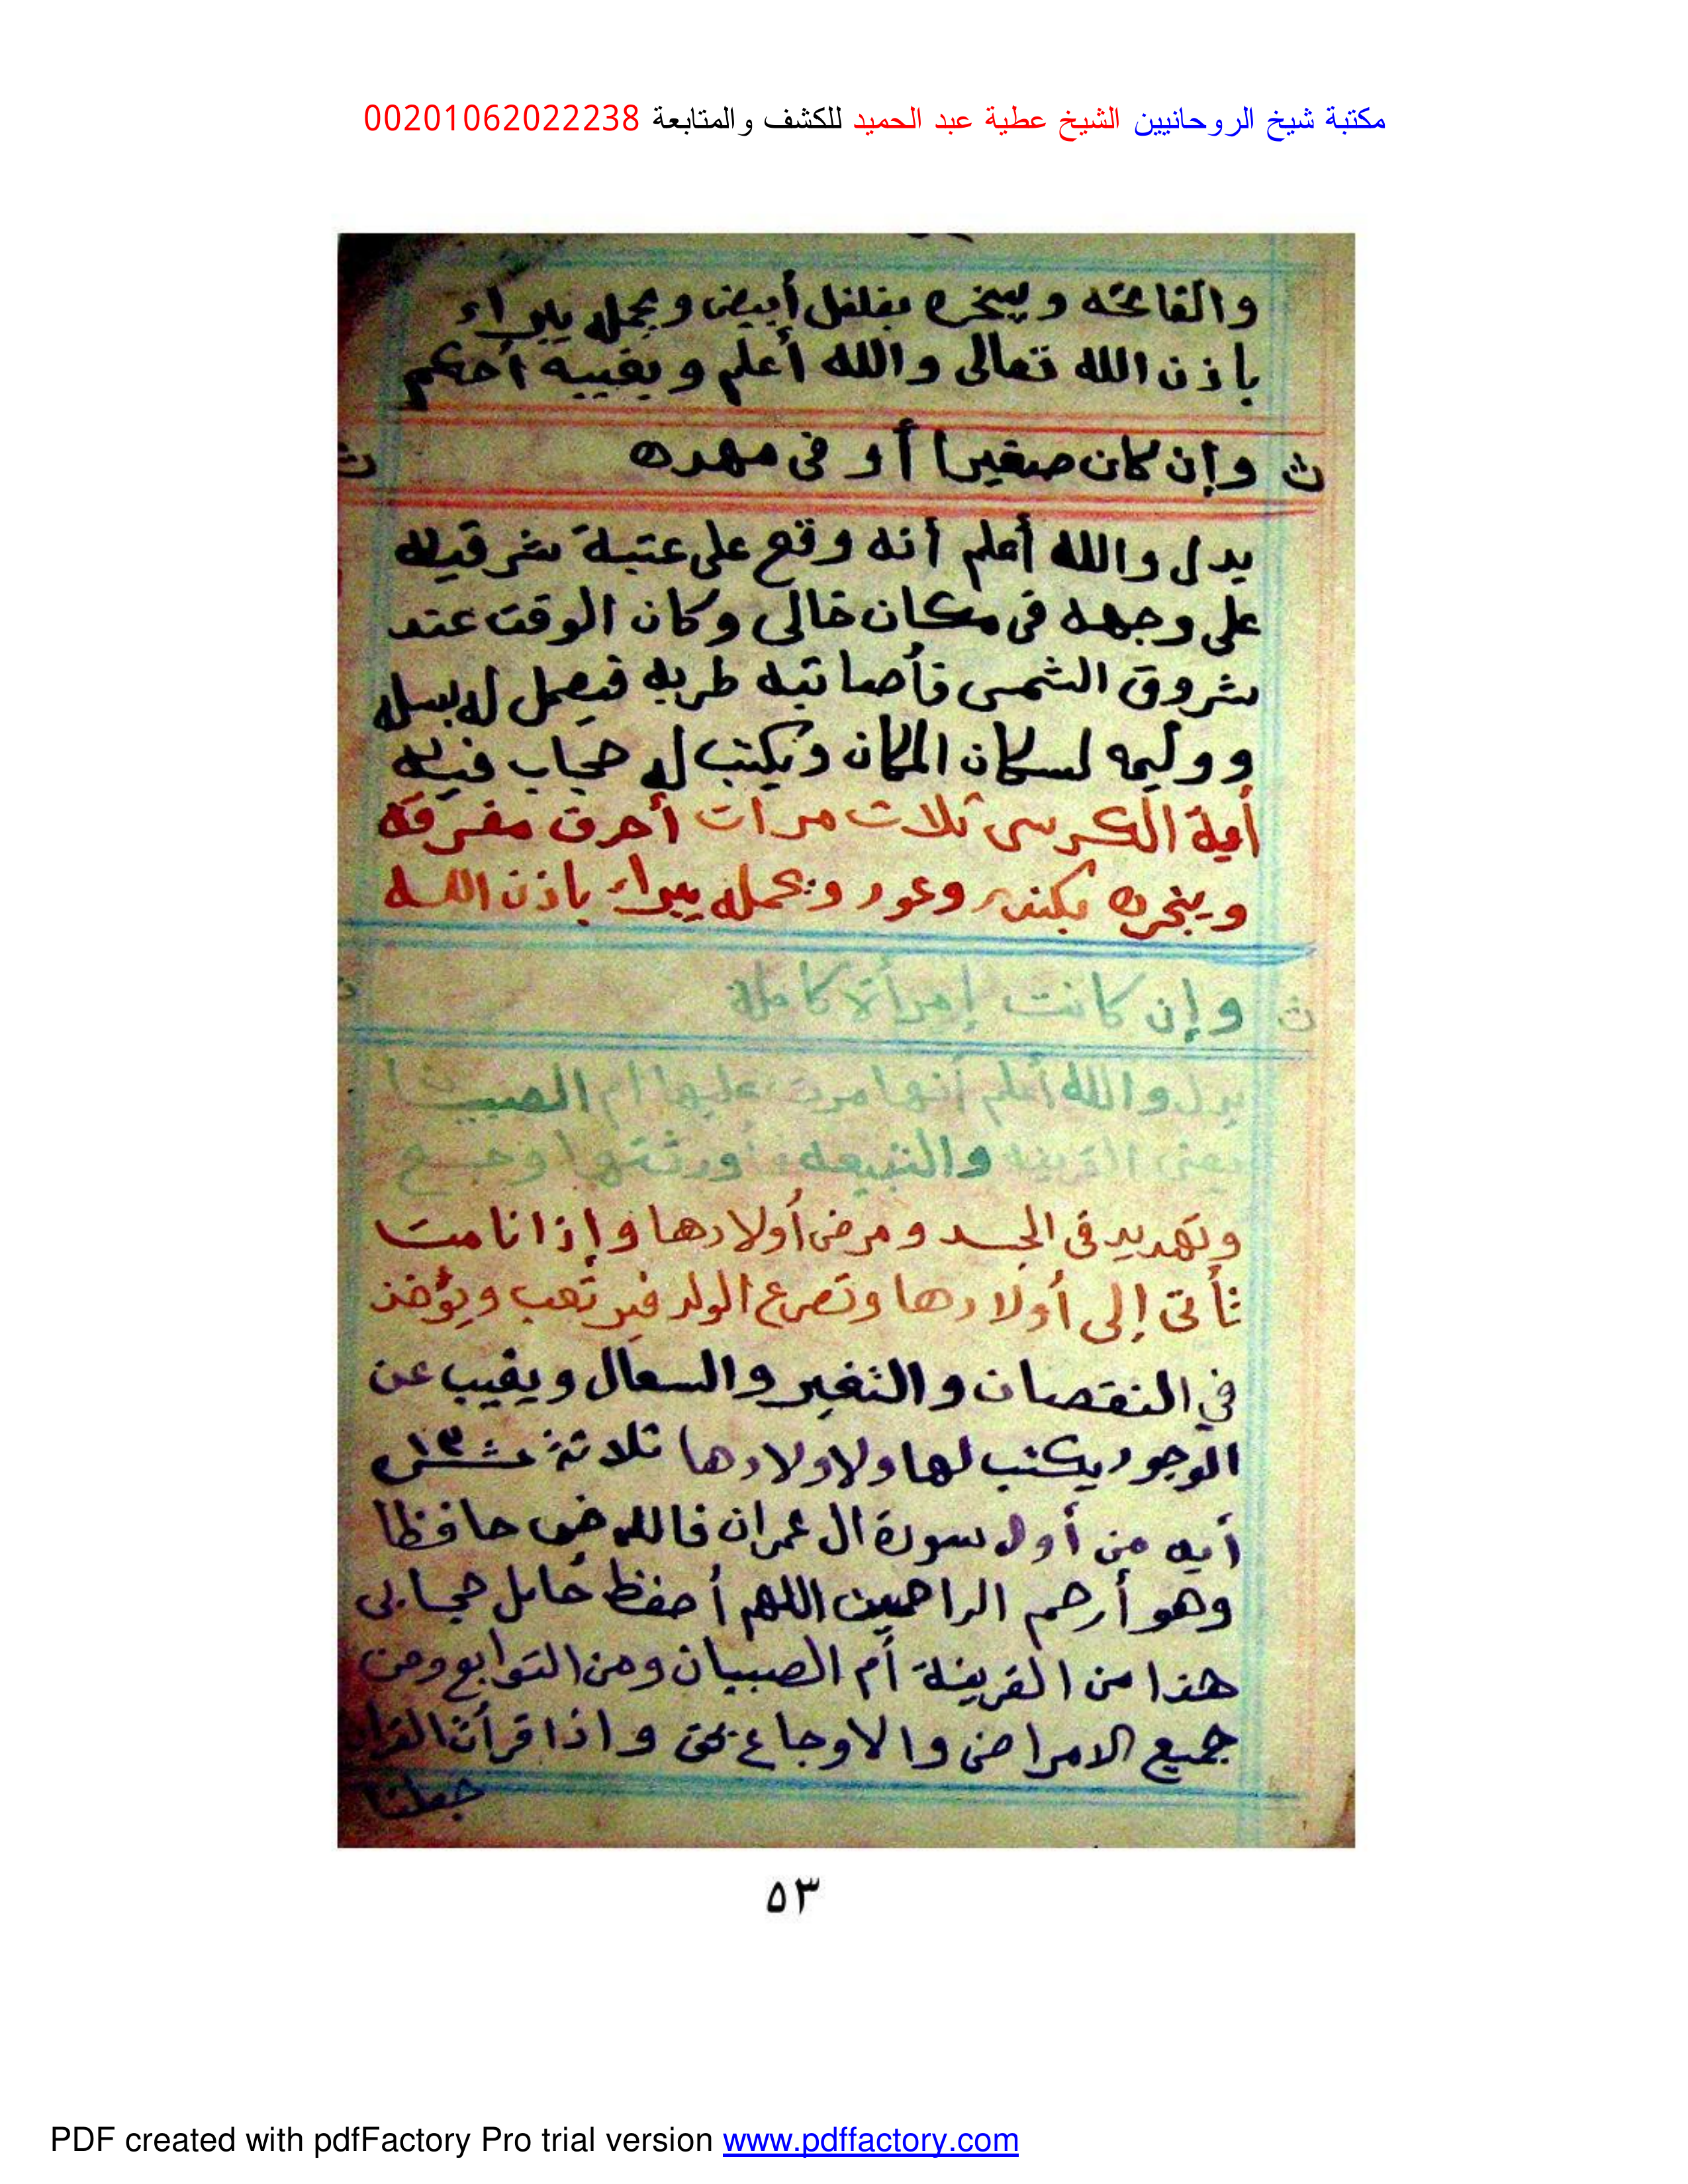 مكتبة شيخ الروحانيين الشيخ عطية عبد الحميد للكشف والمتابعة 00201062022238
والفاتحه ويبخره بفلفل أبيض ويحمله يبراء
باذن الله تعالى والله أعلم وبغيبه أحكم
ث وإن كان صغيرا أو فى مهده ث
يدل والله أعلم أنه وقع على عتبة شرقيه
على وجهه فى مكان خالى وكان الوقت عند
شروق الشمس فأصابته طربه فيعمل له بسله
ووليمه لسكان المكان ويكتب له حجاب فيه
أية الكرسى ثلاث مرات أحرف مفرقه
ويبخره بكندر وعود ويحمله يبراء باذن الله
ث وإن كانت إمرأة كاملة ث
يدل والله أعلم أنها مرت عليها أم الصبيان
يعنى القرينه والتبيعه فأورثتها وجع
وتهديد فى الجسد ومرض أولادها وإذا نامت
تأتى إلى أولادها وتصرع الولد فيرتعب ويؤخذ
في النقصان والتغير والسعال ويغيب عن
الوجود يكتب لها ولاولادها ثلاثة عشر ١٣
أيه من أول سورة ال عمران فالله خير حافظا
وهو أرحم الراحمين اللهم أحفظ حامل حجابى
هذا من القرينة أم الصبيان ومن التوابع ومن
جميع الامراض والاوجاع بحق واذا قرأت القران
جعلنا
٥٣
PDF created with pdfFactory Pro trial version www.pdffactory.com